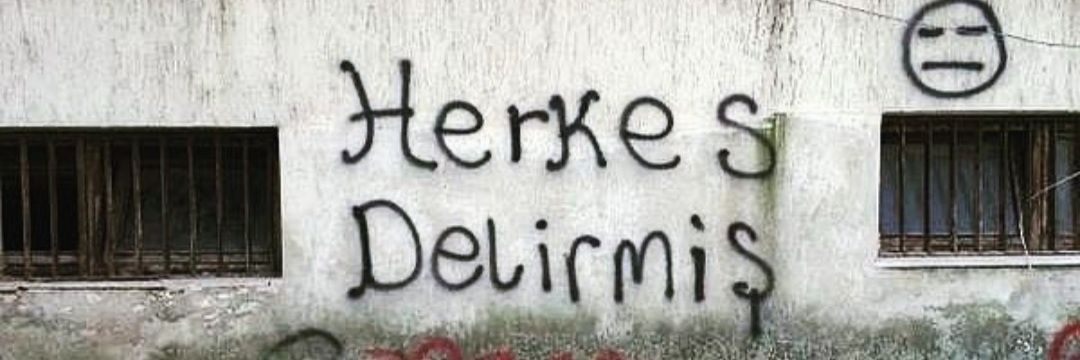 Herkes
Delirmiş